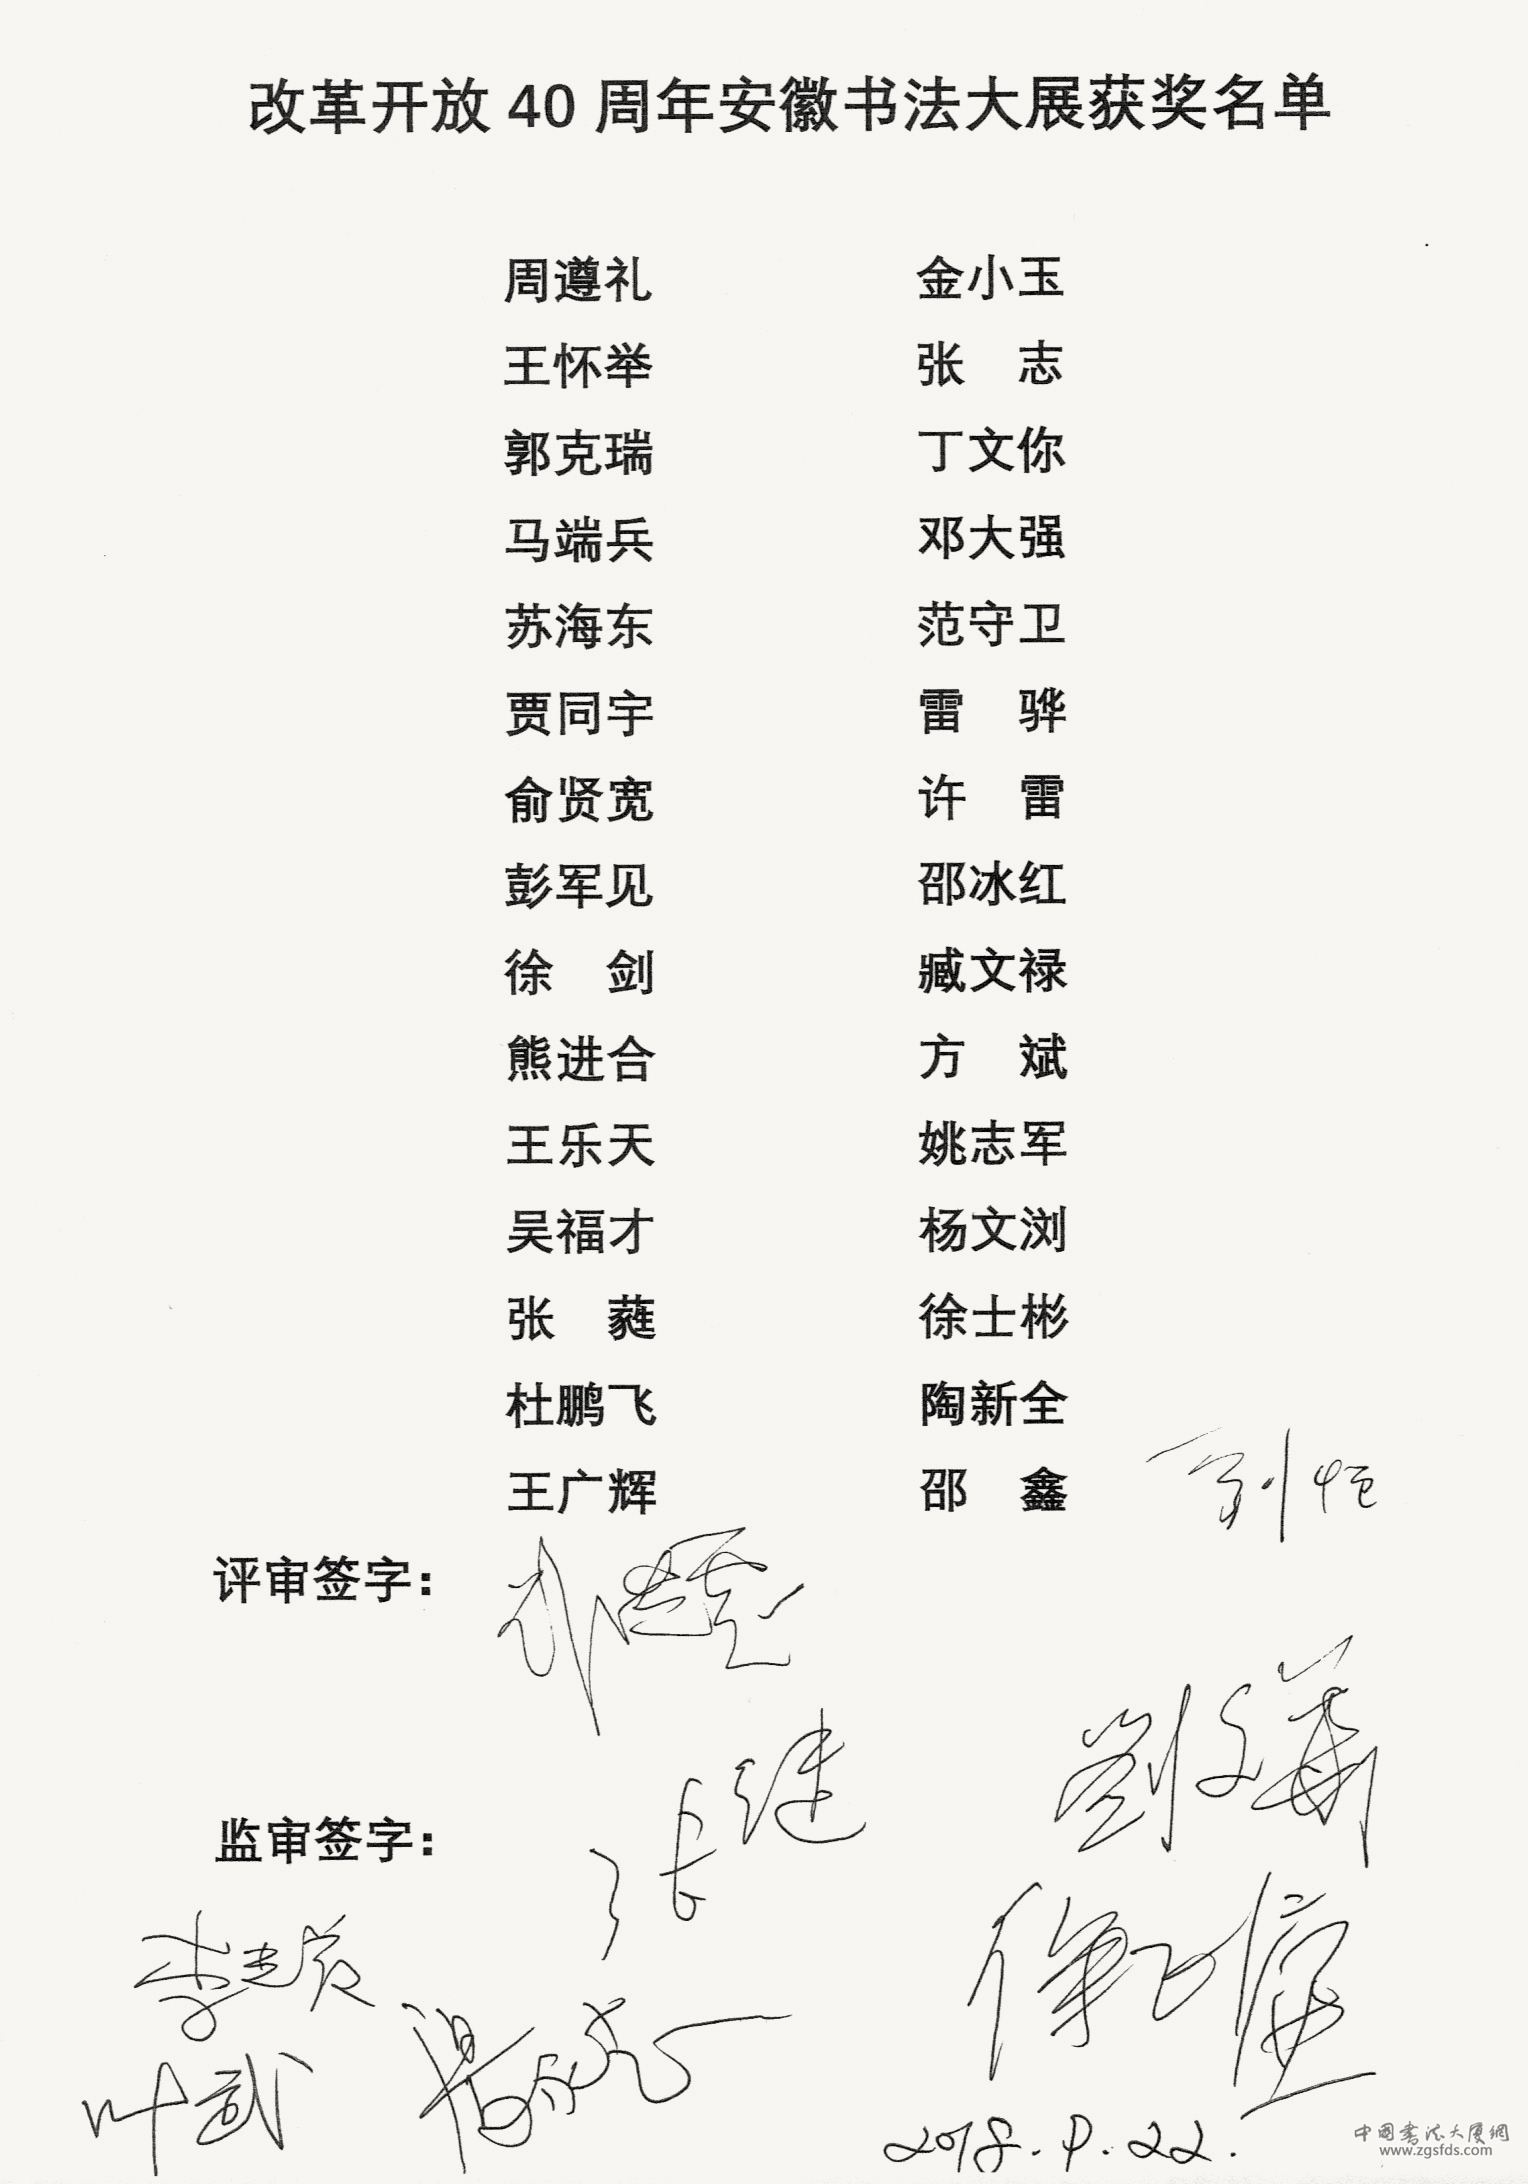 改革开放 40 周年安徽书法大展获奖名单
周遵礼 金小玉
王怀举 张 志
郭克瑞 丁文你
马端兵 邓大强
苏海东 范守卫
贾同宇 雷 骅
俞贤宽 许 雷
彭军见 邵冰红
徐 剑 臧文禄
熊进合 方 斌
王乐天 姚志军
吴福才 杨文浏
张 蕤 徐士彬
杜鹏飞 陶新全
王广辉 邵 鑫
刘恒
评审签字:
张继
监审签字:
叶武
2018.9.22.
中国书法大厦网
www.zgsfds.com